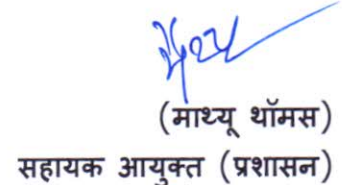 (माथ्यू थॉमस)
सहायक आयुक्त (प्रशासन)